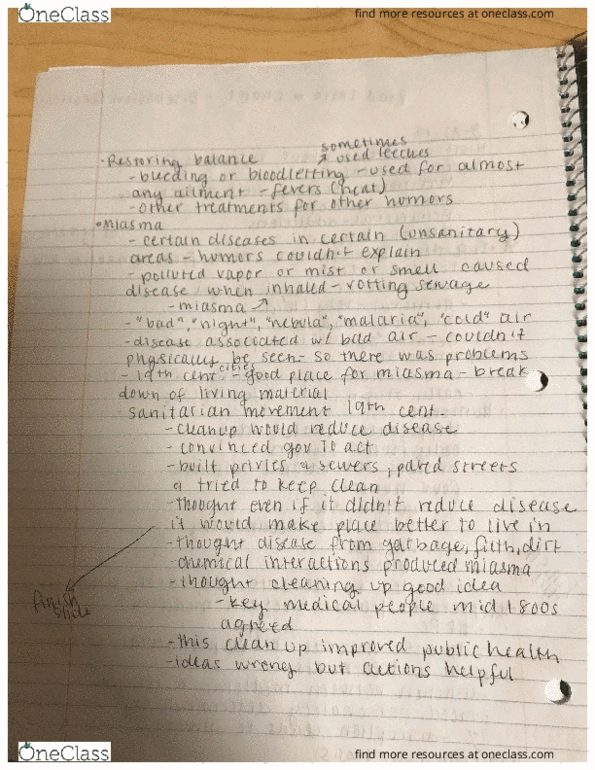 OneClass
find more resources at oneclass.com
sometimes
↗ used leeches
• Restoring balance
- bleeding or bloodletting - used for almost
any ailment - fevers (heat)
- other treatments for other humors
• Miasma
- certain diseases in certain (unsanitary)
areas - humors couldn't explain
- polluted vapor or mist or smell caused
disease when inhaled - rotting sewage
- miasma ↗
- "bad", "night", "nebula", "malaria", "cold" air
- disease associated w/ bad air - couldn't
physically be seen - so there was problems
cities
- 19th cent - good place for miasma - break
down of living material
- sanitarian movement 19th cent.
- cleanup would reduce disease
- convinced gov to act
- built privies & sewers, paved streets
& tried to keep clean
- thought even if it didn't reduce disease
it would make place better to live in
- thought disease from garbage, filth, dirt
- chemical interactions produced miasma
- thought cleaning up good idea
finish
slide
- key medical people mid 1800s
agreed
- this clean up improved public health
- ideas wrong but actions helpful
OneClass
find more resources at oneclass.com